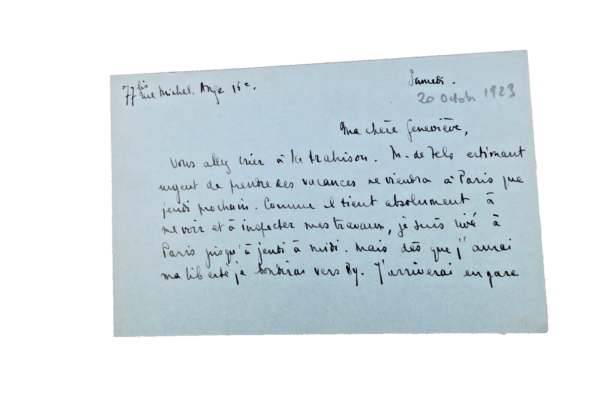 77 bis rue Michel. Ange 16e.
Samedi.
20 Octob 1923
Ma chère Geneviève,
Vous allez crier à la trahison. M. de Fels estimant
urgent de prendre des vacances ne viendra à Paris que
jeudi prochain. Comme il tient absolument à
me voir et à inspecter mes travaux, je suis rivé à
Paris jusqu'à jeudi à midi. Mais dès que j'aurai
ma liberté je bondirai vers Ry. J'arriverai en gare